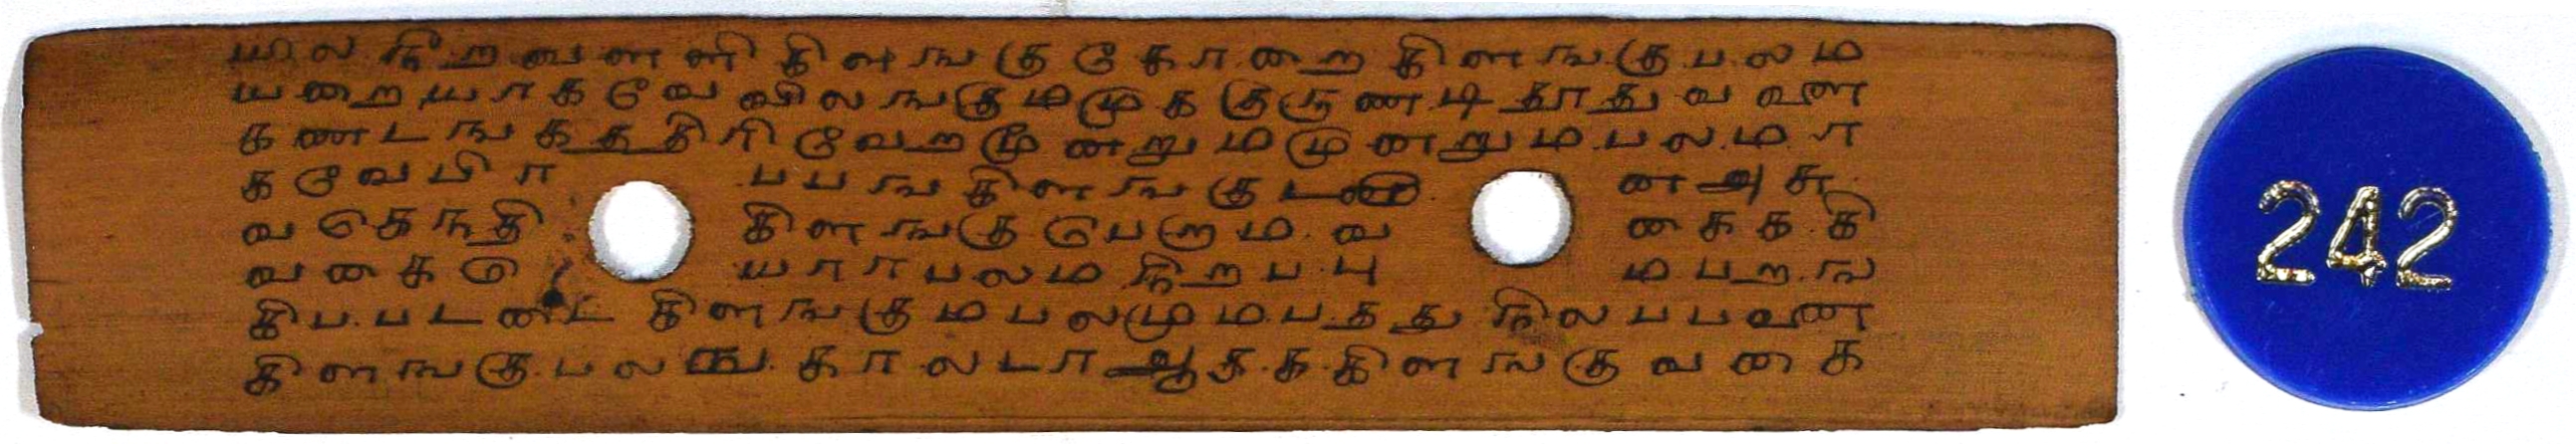 யில நீறவளளி கிளஙகு கோறை கிளஙகு பலம
யறையாக வேவிலஙகுமமுக குருணடிதூதுவவண
கணடஙகததிரி வேறமூனறுமமுனறும பலமா
கவேபிர பபஙகிளஙகுடனி ன அசு
வகெநதி கிளஙகு பெறும வ கைககி
வகைடு யாரபலம நிறபபு ம பறங
கிபபடனட கிளஙகும பலமுமபதது நிலபபவண
கிளஙகு பலஙகாலடாஆதககிளஙகு வகைக
242